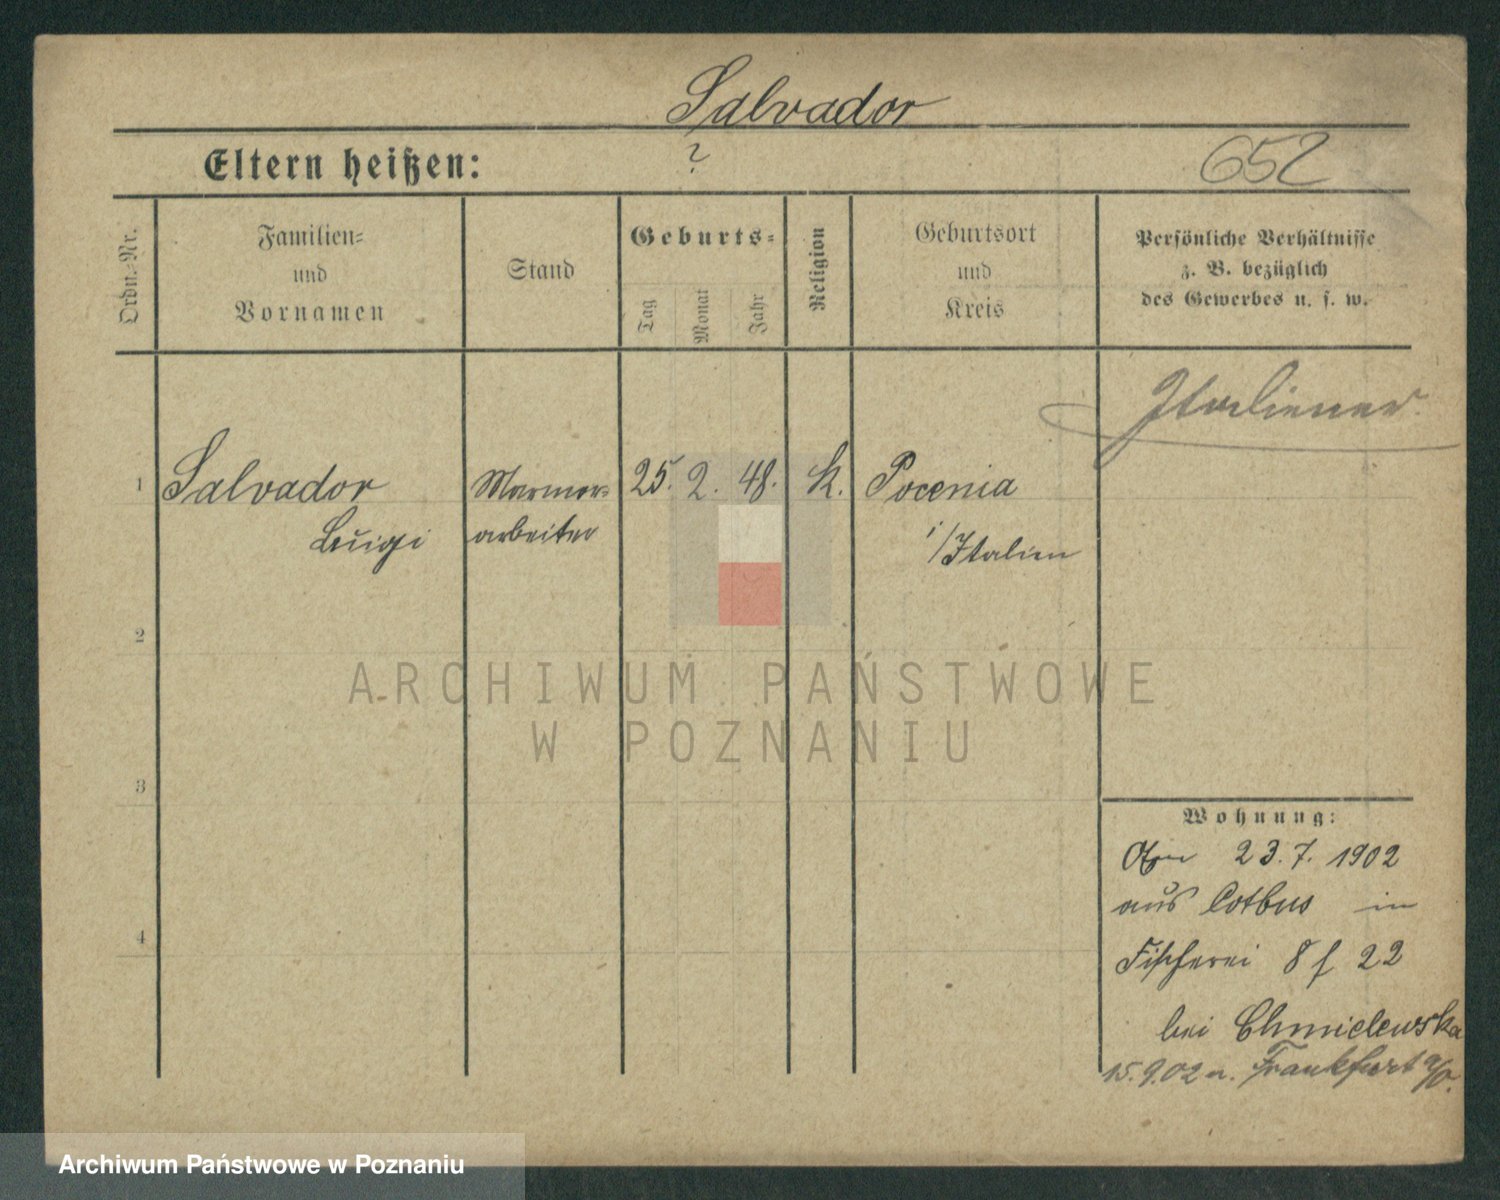 Salvador
Eltern heißen: ?
652
Ordn.-Nr.
Familien-
und
Vornamen
Stand
Geburts-
Tag
Monat
Jahr
Religion
Geburtsort
und
Kreis
Persönliche Verhältnisse
z. B. bezüglich
des Gewerbes u. s. w.
Italiener.
1 Salvador Marmor- 25. 2. 48. K. Pocenia
Luigi arbeiter i/Italien
2
ARCHIWUM PAŃSTWOWE
W POZNANIU
3
Wohnung:
23. 7. 1902
aus Cotbus in
4
Fischerei 8 f 22
bei Chmielewska
15.9.02 n. Frankfurt a/O.
Archiwum Państwowe w Poznaniu